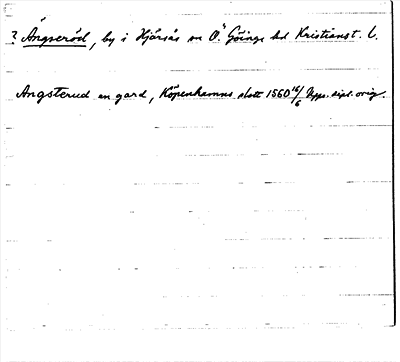 ? Ångseröd, by i Hjärsås sn Ö. Göinge hd Kristianst. l.
Angsterud en gard, Köpenhamns slott 1560 16/6 Upps. dipl. orig.